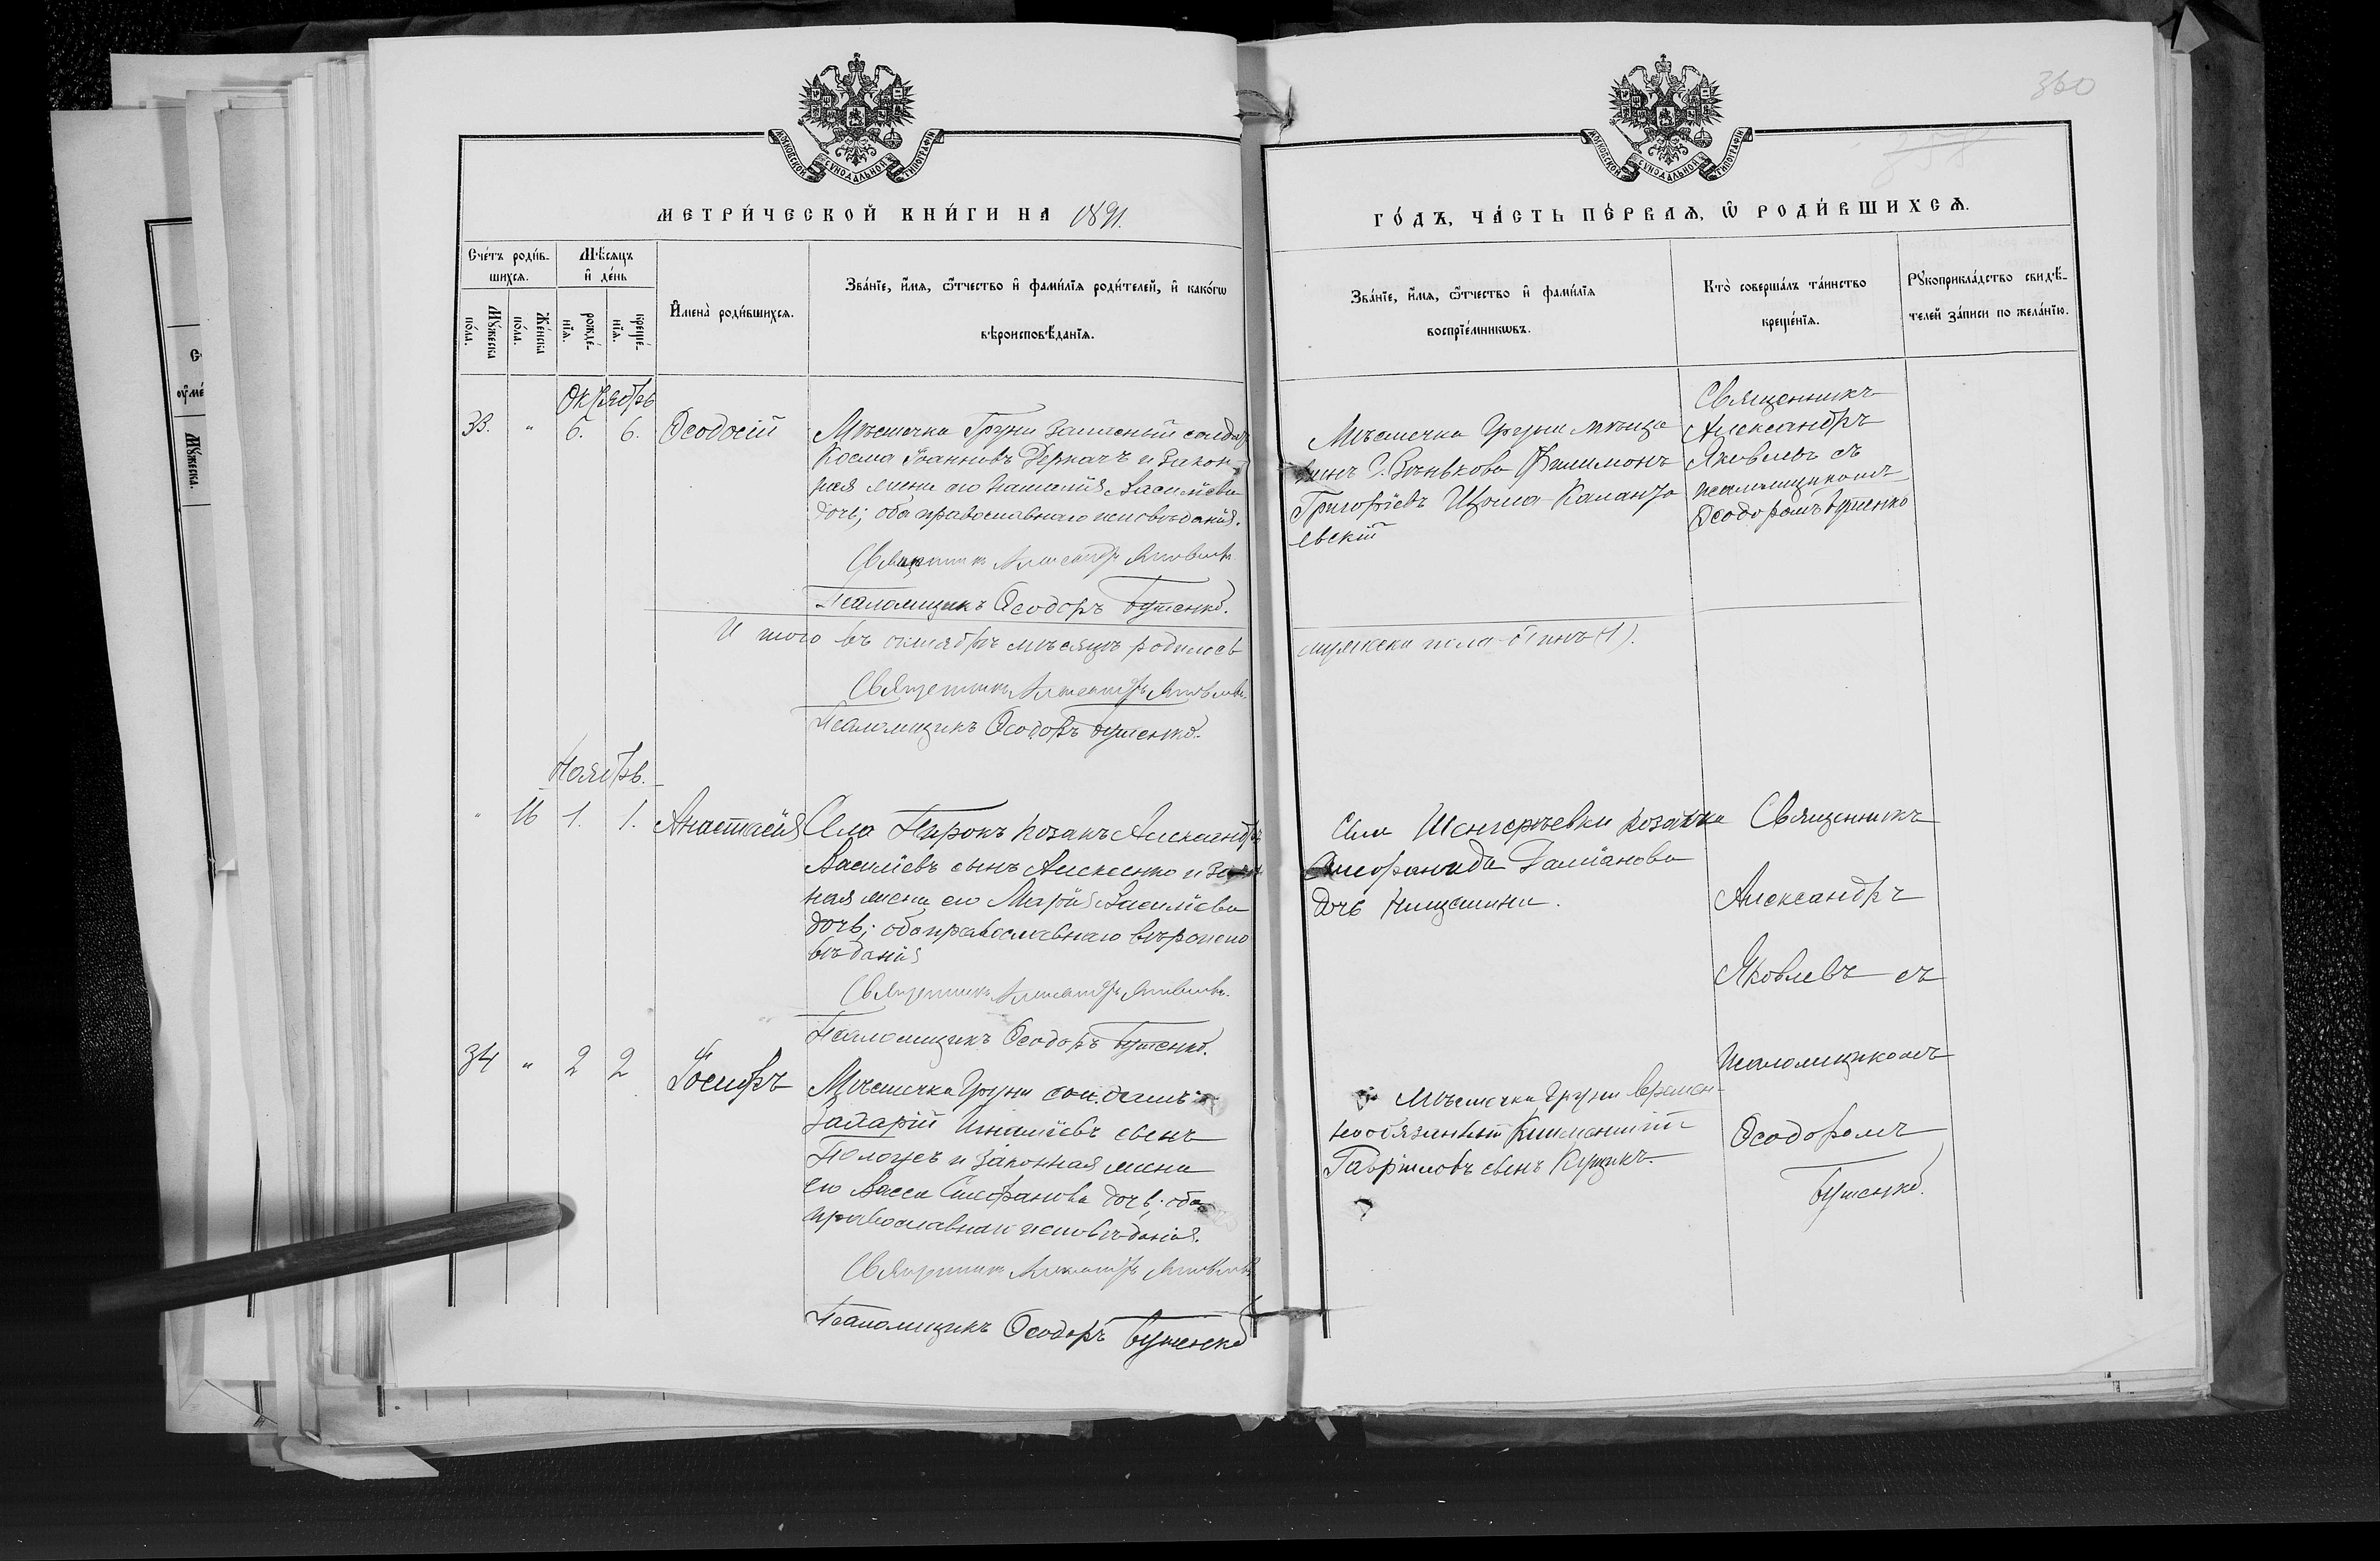 360
МОСКОВСКОЙ СѴНОДАЛЬНОЙ ТИПОГРАФІИ
МОСКОВСКОЙ СѴНОДАЛЬНОЙ ТИПОГРАФІИ
МЕТРИ́ЧЕСКОЙ КНИ́ГИ НА 1891.
ГО́ДЪ, ЧА́СТЬ ПЕ́РВАѦ, Ѡ҆ РОДИ́ВШИХСѦ.
Сче́тъ роди́в-
шихся.
Мѣ́сяцъ
и де́нь
Му́жеска по́ла.
Же́нска по́ла.
рожде́-нїя.
креще́-нїя.
И҆мена̀ роди́вшихся.
Зва́нїе, и҆́мя, ѻ҆́тчество и҆ фами́лїя роди́телей, и҆ како́гѡ
вѣроисповѣ́данїя.
Зва́нїе, и҆́мя, ѻ҆́тчество и҆ фами́лїя
воспрїе́мникѡвъ.
Кто̀ соверша́лъ та́инство
креще́нїя.
Рꙋкоприкла́дство свидѣ́-
телей за́писи по жела́нїю.
Октябрь
33. " 6. 6. Ѳеодосій
Мѣстечка Груни запасный солдат
Косма Іоанновъ Деркачъ и закон-
ная жена его Наталія Василіева
дочь; оба православнаго исповѣданія.
Священникъ Александръ Яковлевъ
Псаломщикъ Ѳеодоръ Бутенко.
Мѣстечка Груни мѣща
нинъ г. Зѣнькова Филимонъ
Григоріевъ
евскій
Священникъ
Александръ
Яковлевъ съ
псаломщикомъ
Ѳеодоромъ Бутенко
И того въ октябрѣ мѣсяцѣ родилось
мужеска пола одинъ (1).
Священникъ Александръ Яковлевъ
Псаломщикъ Ѳеодоръ Бутенко.
Ноябрь.
" 16 1. 1. Анастасія
Села козакъ Александръ
Василіевъ сынъ Алексенко и закон
ная жена его Марія Василіева
дочь; оба православнаго вѣроиспо
вѣданія
Священникъ Александръ Яковлевъ
Псаломщикъ Ѳеодоръ Бутенко.
Села козачка
Даміанова
дочь
Священникъ
Александръ
Яковлевъ съ
псаломщикомъ
Ѳеодоромъ
Бутенко.
34 " 2 2 Іосифъ
Мѣстечка Груни солдатъ
Захарій Игнатіевъ сынъ
и законная жена
его Васса Стефанова дочь; оба
православнаго исповѣданія.
Священникъ Александръ Яковлевъ
Псаломщикъ Ѳеодоръ Бутенко
Мѣстечка Груни времен-
нообязанный Климентій
Гавріиловъ сынъ Куцикъ.